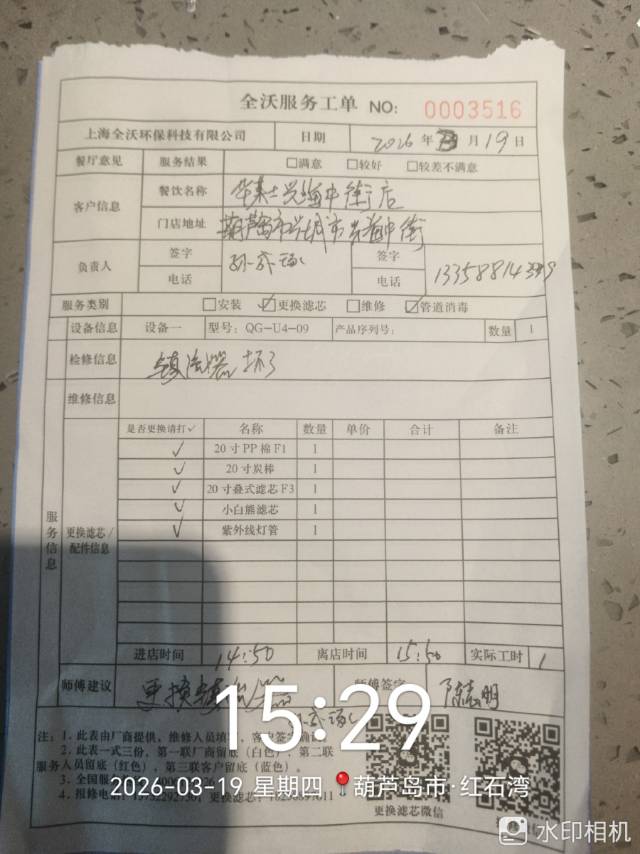 全沃服务工单 NO: 0003516
上海全沃环保科技有限公司 日期 2026年3月19日
餐厅意见 服务结果 □满意 □较好 □较差不满意
客户信息 餐饮名称 华莱士兴海中街店
门店地址 葫芦岛市兴城市兴海中街
负责人 签字 签字
电话 电话
服务类别 □安装 ☑更换滤芯 □维修 ☑管道消毒
设备信息 设备一 型号: QG-U4-09 产品序列号: 数量 1
检修信息 镇流器坏了
维修信息
服务信息 更换滤芯/配件信息
是否更换请打✓ 名称 数量 单价 合计 备注
✓ 20寸PP棉F1 1
✓ 20寸炭棒 1
✓ 20寸叠式滤芯F3 1
✓ 小白熊滤芯 1
✓ 紫外线灯管 1
进店时间 14:50 离店时间 15:50 实际工时 1
师傅建议 更换镇流器 师傅签字
注: 1.此表由厂商提供，维修人员填写，客户签字确认
2.此表一式三份，第一联厂商留底（白色），第二联
服务人员留底（红色），第三联客户留底（蓝色）。
3.全国服
4.报修电话: 更换滤芯:
更换滤芯微信
15:29
2026-03-19 星期四 葫芦岛市·红石湾
水印相机